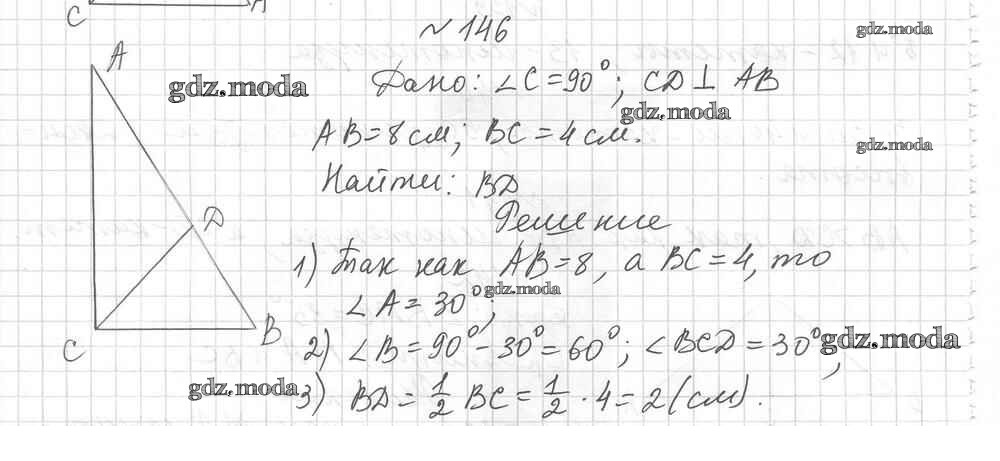 C A
№ 146
gdz.moda
A
Дано: ∠C = 90°; CD ⊥ AB
gdz.moda
gdz.moda
AB = 8 см; BC = 4 см.
gdz.moda
Найти: BD
D
Решение
1) Так как AB = 8, а BC = 4, то
gdz.moda
∠A = 30°;
C B
2) ∠B = 90° - 30° = 60°; ∠BCD = 30°;
gdz.moda
gdz.moda
3) BD = 1/2 BC = 1/2 · 4 = 2 (см).